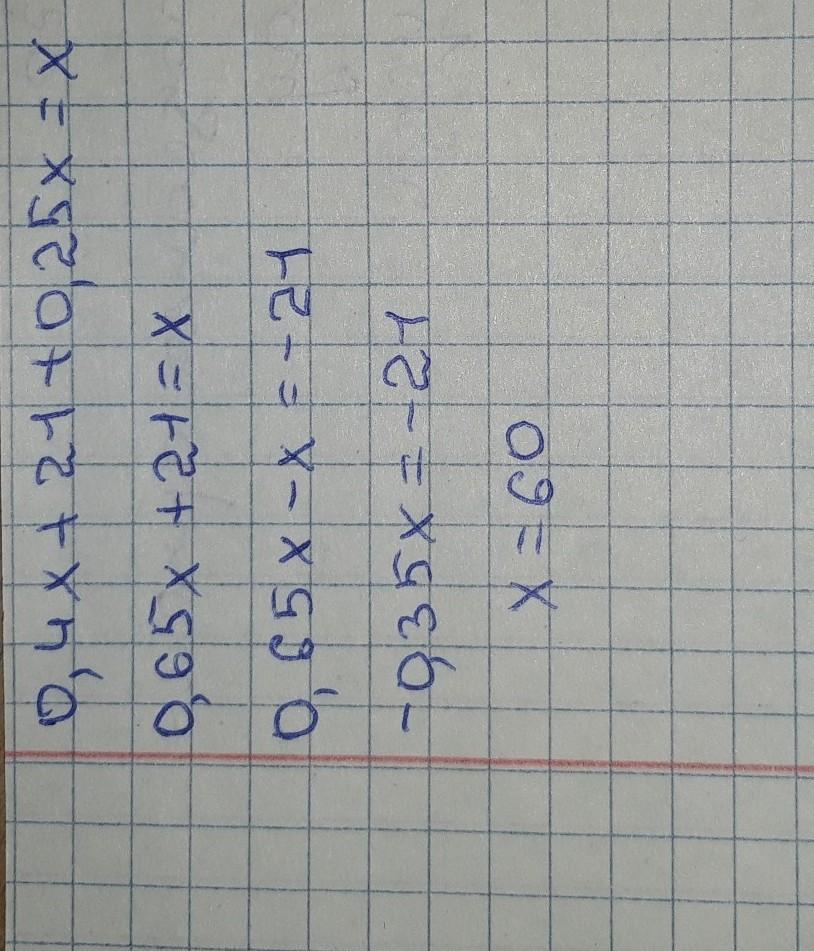 0,4x + 21 + 0,25x = x
0,65x + 21 = x
0,65x - x = -21
-0,35x = -21
x = 60